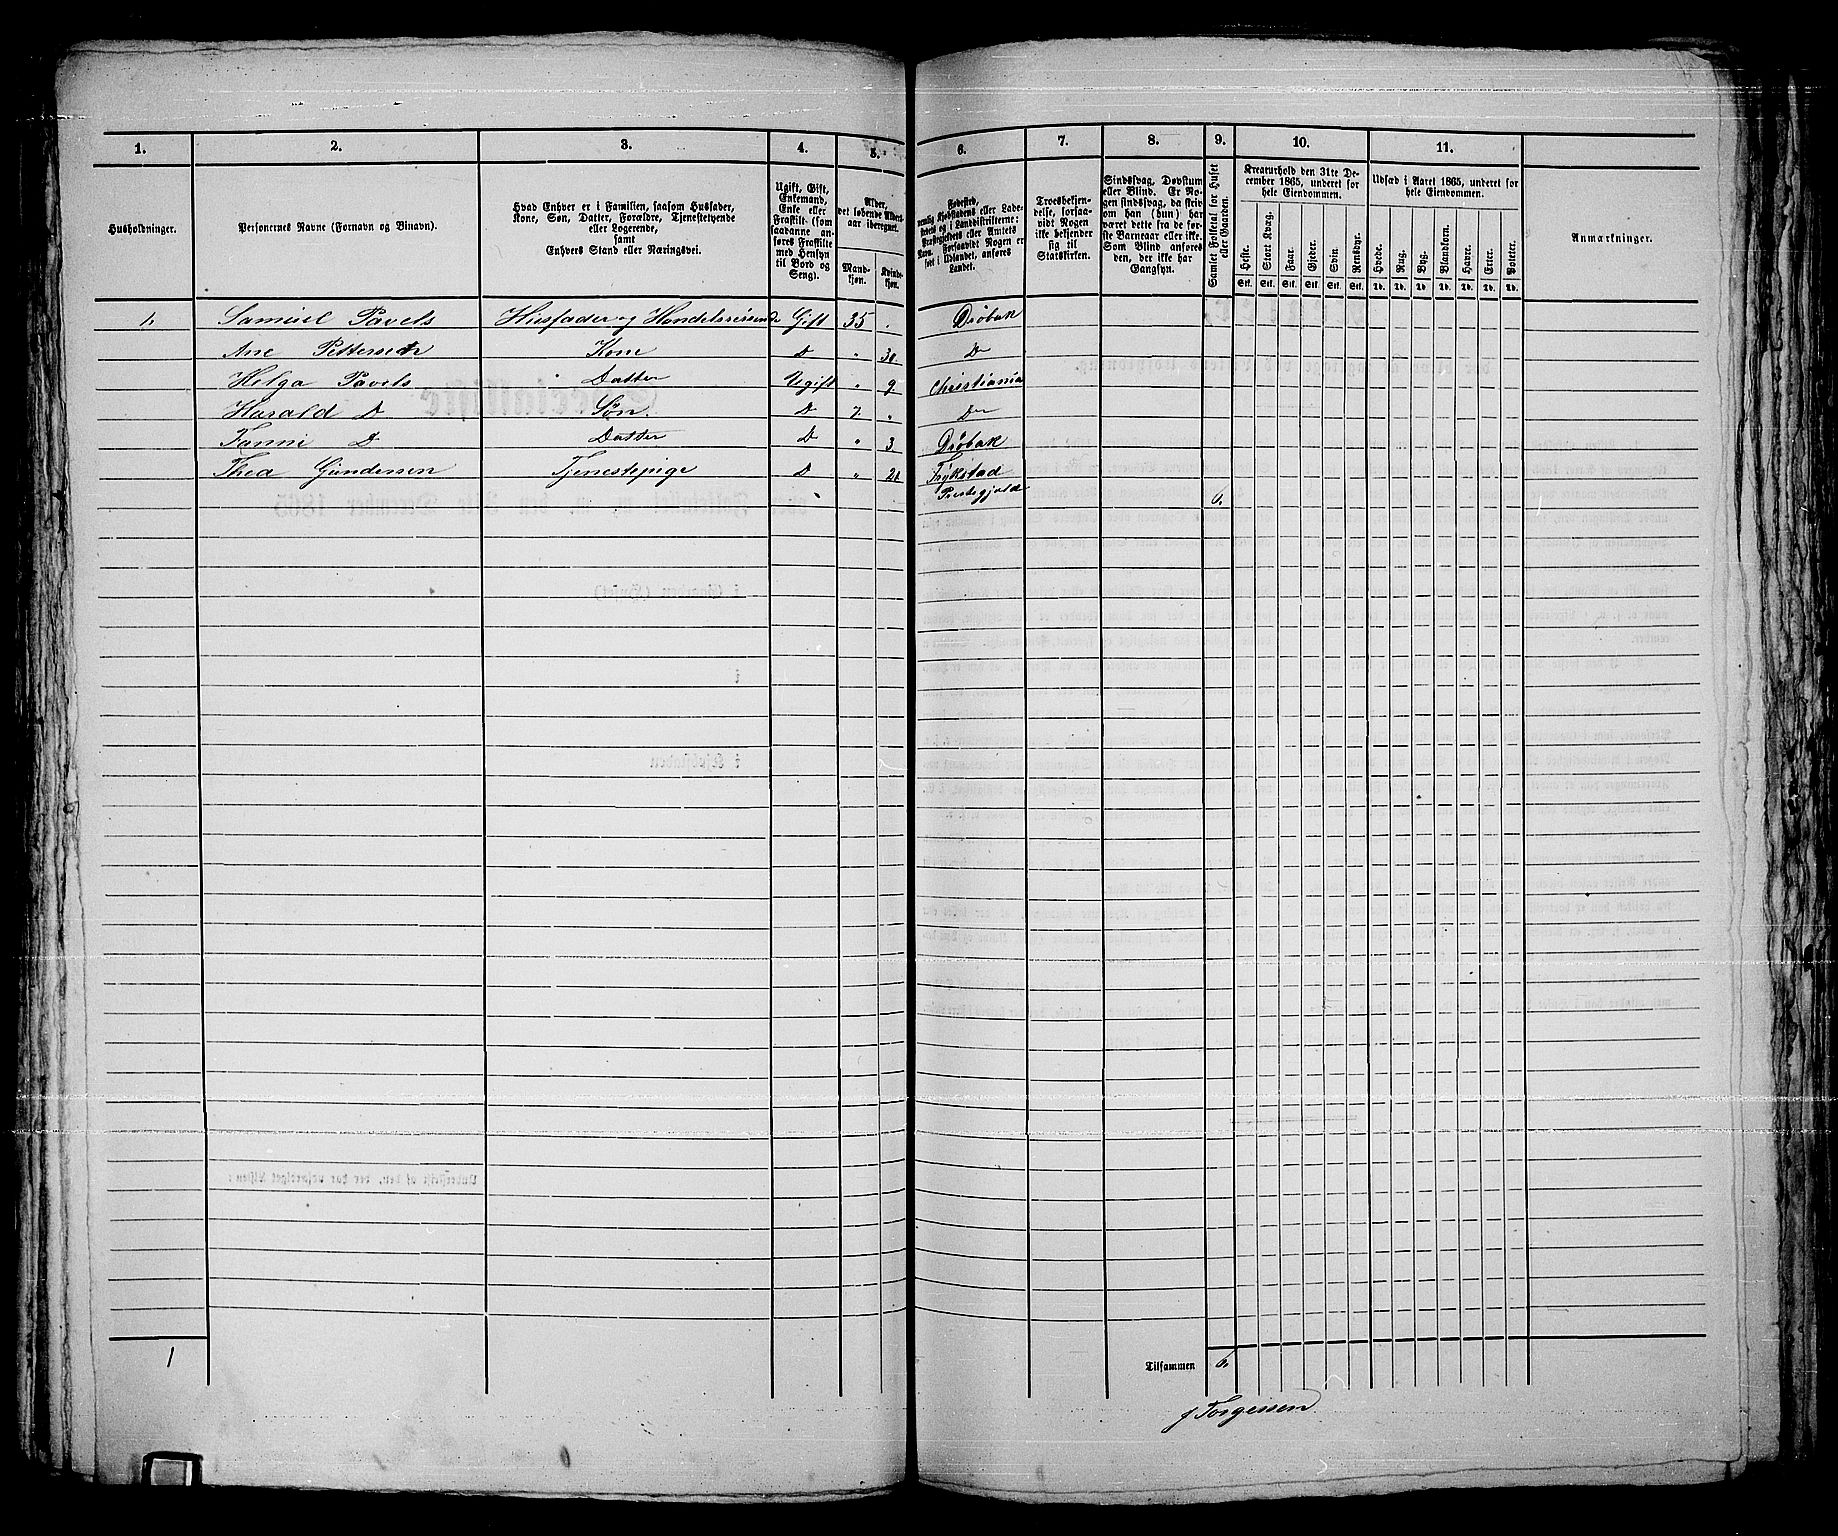 1. 2. 3. 4. 5. 6. 7. 8. 9. 10. 11.
Husholdninger.
Personernes Navne (Fornavn og Binavn).
Hvad Enhver er i Familien, saasom Husfader,
Kone, Søn, Datter, Forældre, Tjenestetyende
eller Logerende,
samt
Enhvers Stand eller Næringsvei.
Ugift, Gift,
Enkemand,
Enke eller
Fraskilt (som
saadanne an-
føres Fraskilte
med Hensyn
til Bord og
Seng).
Alder,
det løbende Alders-
aar iberegnet.
Mand-
kjøn.
Kvinde-
kjøn.
Fødested,
nemlig Kjøbstadens eller Lade-
stedets og i Landdistrikterne:
Præstegjeldets eller Amtets
Navn. Forsaavidt Nogen er
født i Udlandet, anføres
Landet.
Troesbekjen-
delse, forsaa-
vidt Nogen
ikke bekjender
sig til
Statskirken.
Sindssvag, Døvstum
eller Blind. Er No-
gen sindssvag, da skriv
om han (hun) har
været dette fra de før-
ste Barneaar eller ikke.
Som Blind anføres
den, der ikke har
Gangsyn.
Samlet Folketal for Huset
eller Gaarden.
Kreaturhold den 31te De-
cember 1865, underet for
hele Eiendommen.
Heste. Stort Kvæg. Faar. Gjeder. Svin. Rensdyr.
Stk. Stk. Stk. Stk. Stk. Stk.
Udsæd i Aaret 1865, underet for
hele Eiendommen.
Hvede. Rug. Byg. Blandkorn. Havre. Erter. Poteter.
Td. Td. Td. Td. Td. Td. Td.
Anmærkninger.
1. Samuel Pavels Husfader og Handelsreisende Gift 35 . Drøbak
Ane Pettersen Kone D " 30. Do
Helga Pavels Datter Ugift " 9. Christiania
Harald D Søn. D 7. " Do
Fanni D Datter D " 3 Drøbak
Thea Gundersen Tjenestepige D " 21 Trykstad
Prestegjeld 6.
1 Tilsammen 6.
J Torgessen